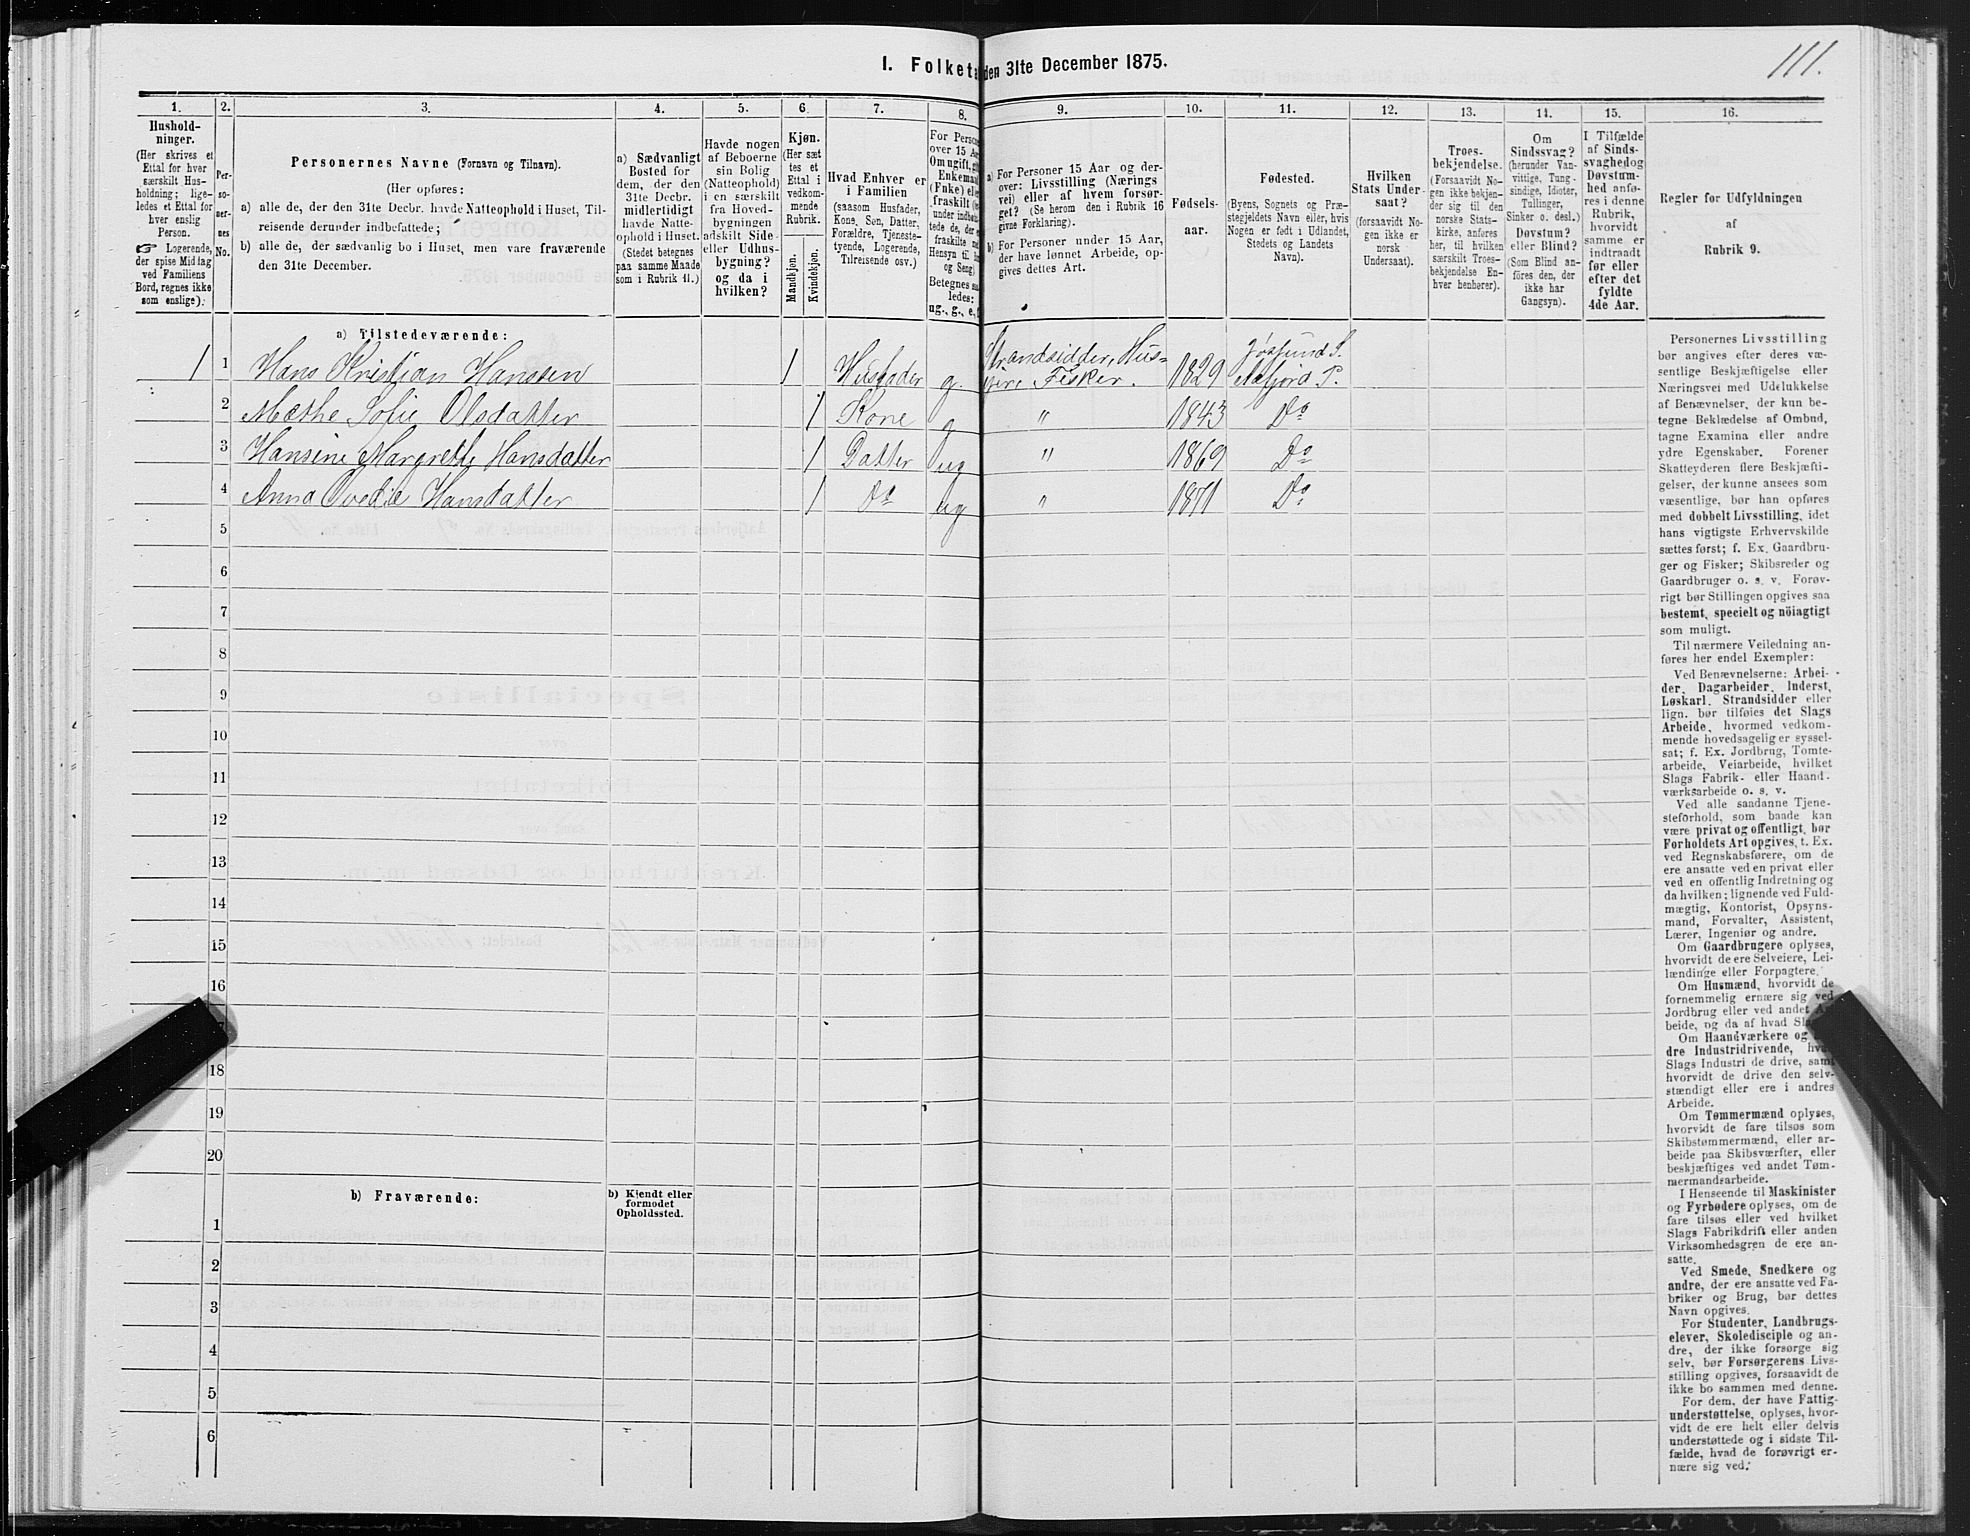 111.
I. Folketa den 31te December 1875.
1. 2. 3. 4. 5. 6. 7. 8. 9. 10. 11. 12. 13. 14. 15. 16.
Hushold-
ninger.
(Her skrives et
Ettal for hver
særskilt Hus-
holdning; lige-
ledes et Ettal for
hver enslig
Person.
☞ Logerende,
der spise Middag
ved Familiens
Bord, regnes ikke
som enslige).
Per-
so-
ner-
nes
No.
Personernes Navne (Fornavn og Tilnavn).
(Her opføres:
a) alle de, der den 31te Decbr. havde Natteophold i Huset, Til-
reisende derunder indbefattede;
b) alle de, der sædvanlig bo i Huset, men vare fraværende
den 31te December.
a) Sædvanligt
Bosted for
dem, der den
31te Decbr.
midlertidigt
havde Natte-
ophold i Huset.
(Stedet betegnes
paa samme Maade
som i Rubrik 11.)
Havde nogen
af Beboerne
sin Bolig
(Natteophold)
i en særskilt
fra Hoved-
bygningen
adskilt Side-
eller Udhus-
bygning?
og da i
hvilken?
Kjøn.
(Her sæt
tes et
Ettal i
vedkom-
mende
Rubrik.
Mandkjøn.
Kvindekjøn.
Hvad Enhver er
i Familien
(saasom Husfader,
Kone, Søn, Datter,
Forældre, Tjeneste-
tyende, Logerende,
Tilreisende osv.)
For Person
over 15 Aa
Om ugift, g
Enkemand
(Enke) elle
fraskilt
under indbe
tede de, de
fraskilte
Hensyn til
og Seng)
Betegnes
ledes:
ug., g., e.,
a) For Personer 15 Aar og der-
over: Livsstilling (Nærings
vei) eller af hvem forsør-
get? (Se herom den i Rubrik 16
givne Forklaring).
b) For Personer under 15 Aar,
der have lønnet Arbeide, op-
gives dettes Art.
Fødsels-
aar.
Fødested.
(Byens, Sognets og Præ-
stegjeldets Navn eller, hvis
Nogen er født i Udlandet,
Stedets og Landets
Navn).
Hvilken
Stats Under-
saat?
(forsaavidt No-
gen ikke er
norsk
Undersaat).
Troes-
bekjendelse.
(Forsaavidt No-
gen ikke bekjen-
der sig til den
norske Stats-
kirke, anføres
her, til hvilken
særskilt Troes-
bekjendelse En-
hver henhører).
Om
Sindssvag?
(herunder Van-
vittige, Tung-
sindige, Idioter,
Tullinger,
Sinker o. desl.)
Døvstum?
eller Blind?
(Som Blind an-
føres den, der
ikke har
Gangsyn).
I Tilfælde
af Sinds-
svaghed og
Døvstum-
hed anfø-
res i denne
Rubrik,
hvorvidt
samme er
indtraadt
før eller
efter det
fyldte
4de Aar.
Regler for Udfyldningen
af
Rubrik 9.
a) Tilstedeværende:
1 1 Hans Kristian Hanssen 1 Husfader g. Strandsidder, Hus- 1829 Jøssund S.
eier, Fisker. Aafjord P.
2 Mæthe Sofie Olsdatter 1 Kone g " 1843 Do
3 Hansine Margrethe Hansdatter 1 Datter ug " 1869 Do
4 Anna Ovedie Hansdatter 1 Do ug " 1871 Do
5
6
7
8
9
10
11
12
13
14
15
16
18
19
20
b) Fraværende:
b) Kjendt eller
formodet
Opholdssted.
1
2
3
4
5
6
Personernes Livsstilling
bør angives efter deres væ-
sentlige Beskjæftigelse eller
Næringsvei med Udelukkelse
af Benævnelser, der kun be-
tegne Beklædelse af Ombud,
tagne Examina eller andre
ydre Egenskaber. Forener
Skatteyderen flere Beskjæfti-
gelser, der kunne ansees som
væsentlige, bør han opføres
med dobbelt Livsstilling, idet
hans vigtigste Erhvervskilde
sættes først; f. Ex. Gaardbru-
ger og Fisker; Skibsreder og
Gaardbruger o. s. v. Forøv-
rigt bør Stillingen opgives saa
bestemt, specielt og nöiagtigt
som muligt.
Til nærmere Veiledning an-
føres her endel Exempler:
Ved Benævnelserne: Arbei-
der, Dagarbeider, Inderst,
Løskarl, Strandsidder eller
lign. bør tilføies det Slags
Arbeide, hvormed vedkom-
mende hovedsagelig er syssel-
sat; f. Ex. Jordbrug, Tomte-
arbeide, Veiarbeide, hvilket
Slags Fabrik- eller Haand-
værksarbeide o. s. v.
Ved alle saadanne Tjene-
steforhold, som baade kan
være privat og offentligt, bør
Forholdets Art opgives, t. Ex.
ved Regnskabsførere, om de
ere ansatte ved en privat eller
ved en offentlig Indretning og
da hvilken; lignende ved Fuld-
mægtig, Kontorist, Opsyns-
mand, Forvalter, Assistent,
Lærer, Ingeniør og andre.
Om Gaardbrugere oplyses,
hvorvidt de ere Selveiere, Lei-
lændinge eller Forpagtere.
Om Husmænd, hvorvidt de
fornemmelig ernære sig ved
Jordbrug eller ved andet Ar
beide, og da af hvad Sl
Om Haandværkere og
dre Industridrivende, hv
Slags Industri de drive, samt
hvorvidt de drive den selv-
stændigt eller ere i andres
Arbeide.
Om Tømmermænd oplyses,
hvorvidt de fare tilsøs som
Skibstømmermænd, eller ar-
beide paa Skibsværfter, eller
beskjæftiges ved andet Tøm-
mermandsarbeide.
I Henseende til Maskinister
og Fyrbødere oplyses, om de
fare tilsøs eller ved hvilket
Slags Fabrikdrift eller anden
Virksomhedsgren de ere an-
satte.
Ved Smede, Snedkere og
andre, der ere ansatte ved Fa-
briker og Brug, bør dettes
Navn opgives.
For Studenter, Landbrugs-
elever, Skoledisciple og an-
dre, der ikke forsørge sig
selv, bør Forsørgerens Livs-
stilling opgives, forsaavidt de
ikke bo sammen med denne.
For dem, der have Fattig-
understøttelse, oplyses, hvor-
vidt de ere helt eller delvis
understøttede og i sidste Til-
fælde, hvad de forøvrigt er-
nære sig ved.